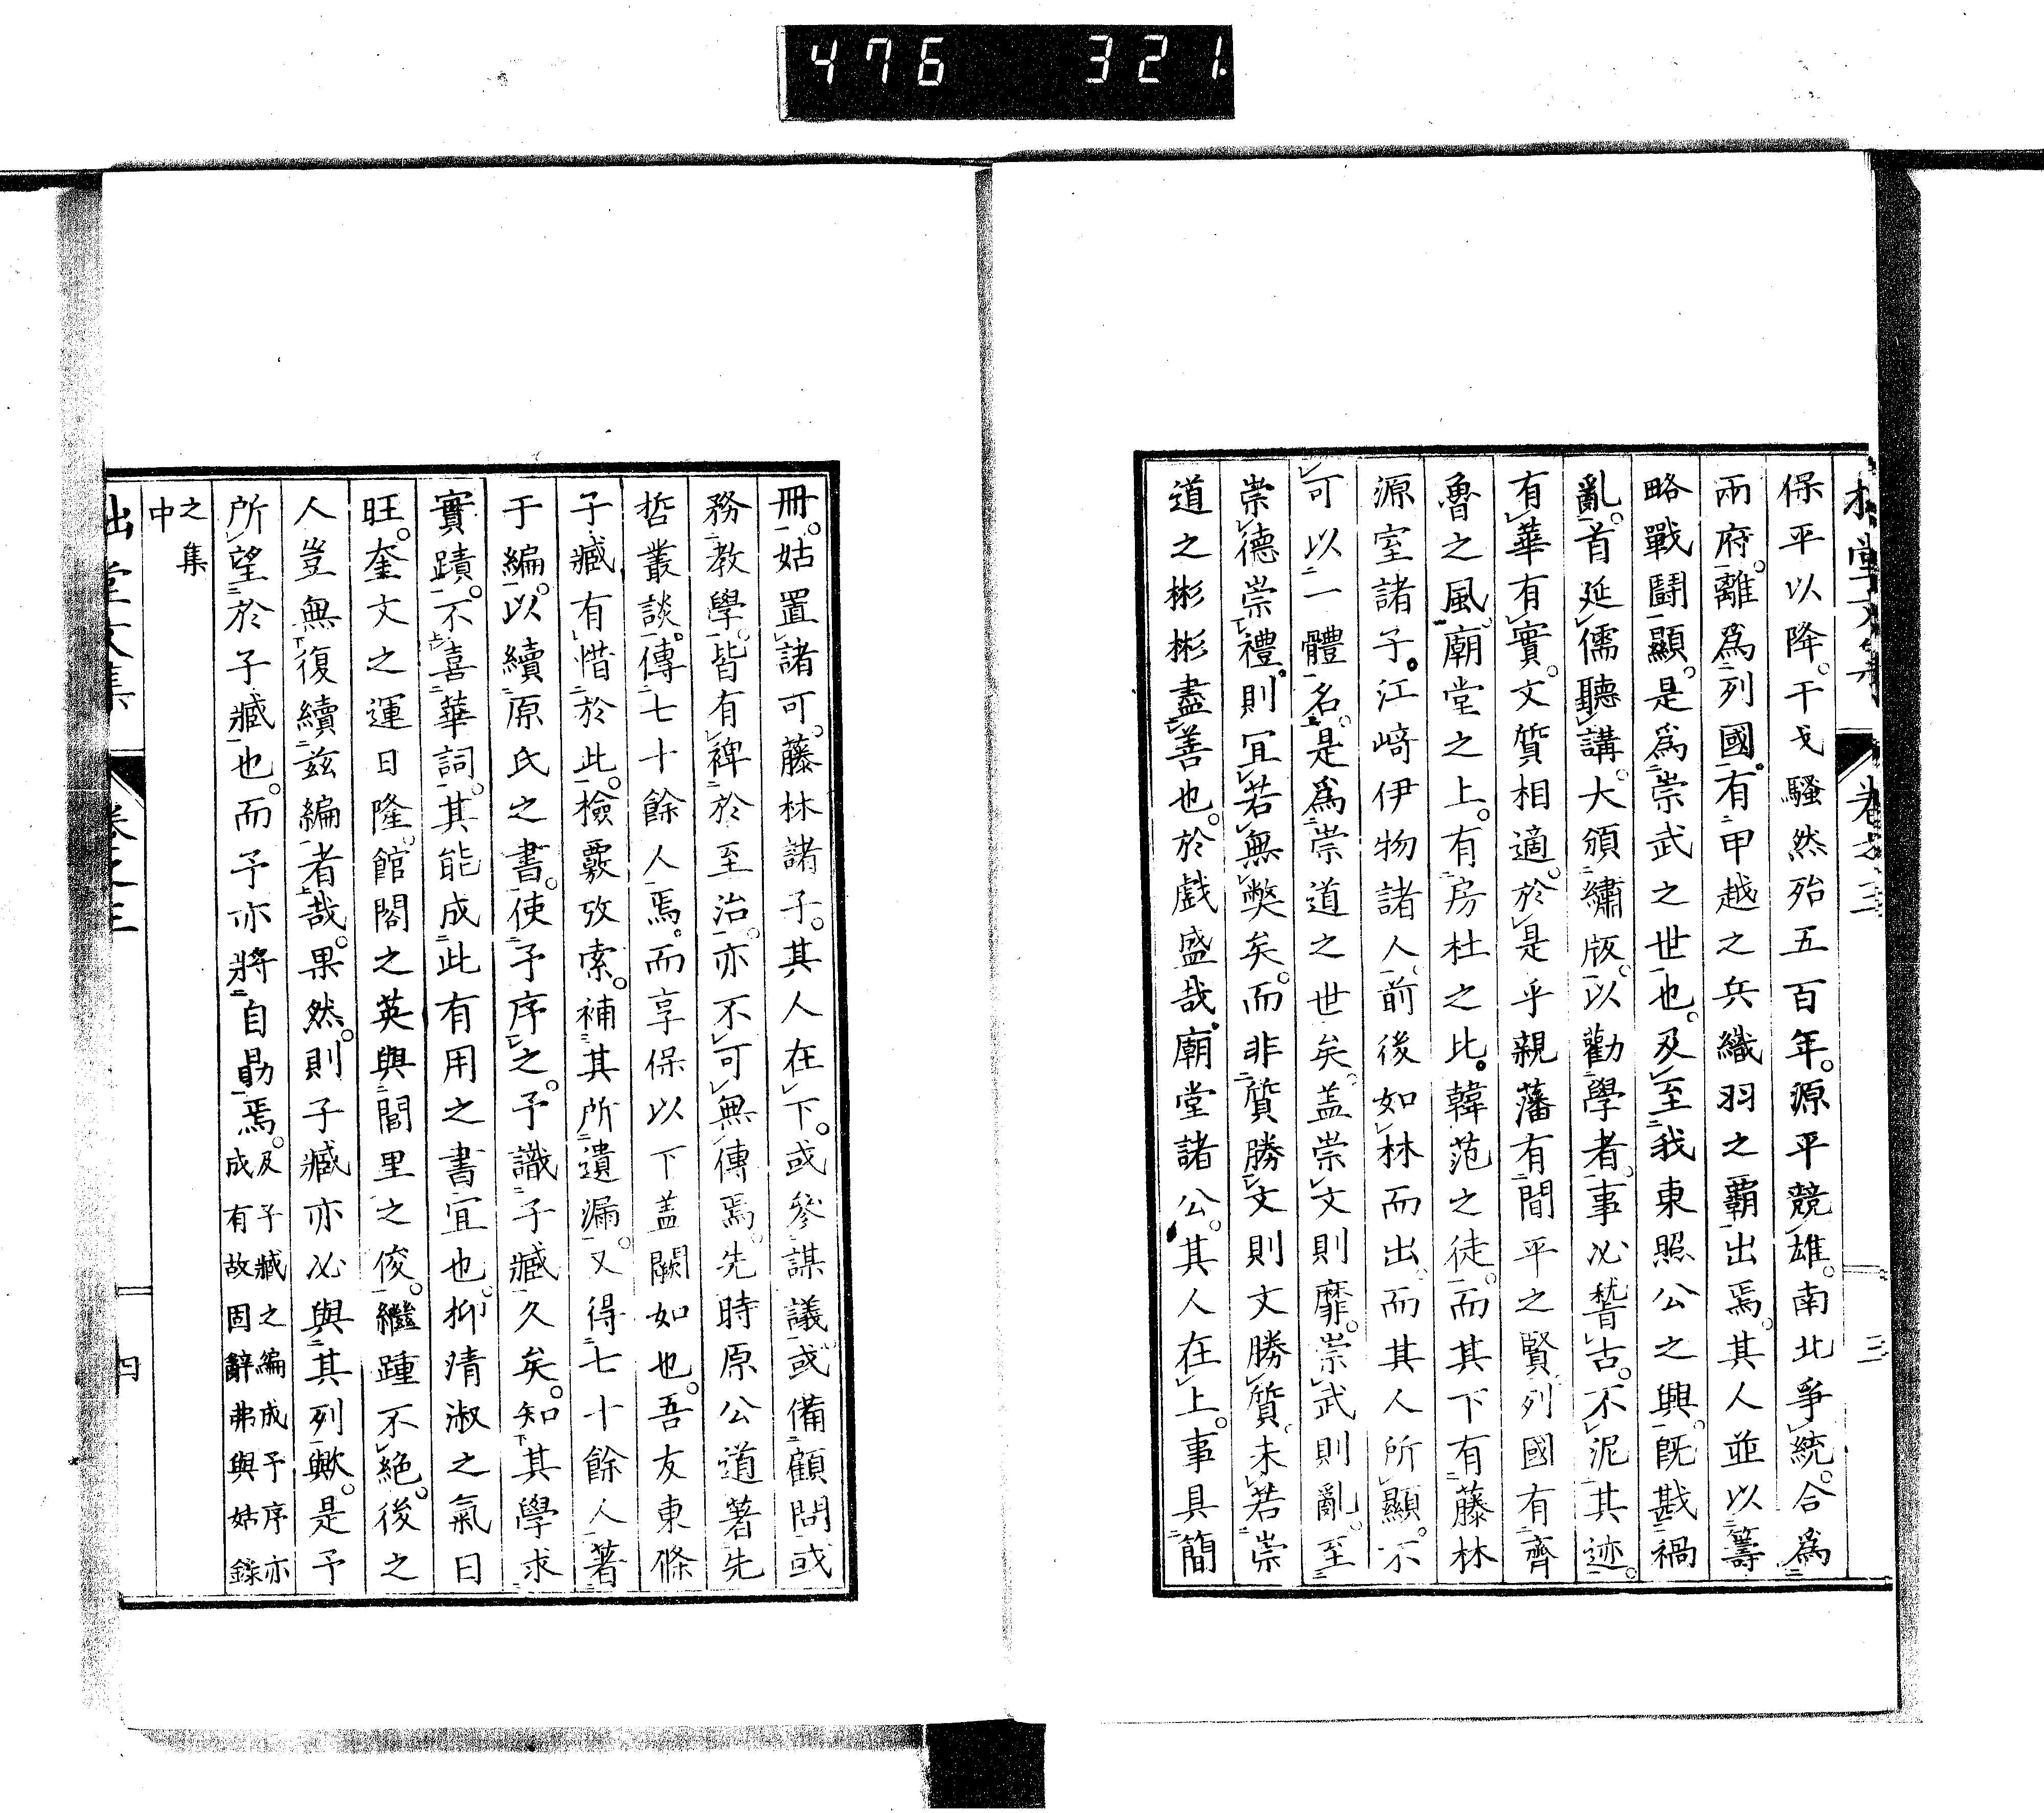 476 321.
保平以降。干戈騷然殆五百年。源平競雄。南北爭統。合爲
兩府。離爲列國。有甲越之兵織羽之覇出焉。其人並以籌
略戰鬪顯。是爲崇武之世也。及至我東照公之興。旣戡禍
亂。首延儒聽講。大頒繡版。以勸學者。事必嵆古。不泥其迹。
有華有實。文質相適。於是乎親藩有間平之賢。列國有齊
魯之風。廟堂之上。有房杜之比。韓范之徒。而其下有藤林
源室諸子。江﨑伊物諸人。前後如林而出。而其人所顯。不
可以一體名。是爲崇道之世矣。盖崇文則靡。崇武則亂。至
崇德崇禮。則冝若無弊矣。而非質勝文則文勝質。未若崇
道之彬彬盡善也。於戲盛哉。廟堂諸公。其人在上。事具簡
冊。姑置諸可。藤林諸子。其人在下。或參謀議。或備顧問。或
務教學。皆有裨於至治。亦不可無傳焉。先時原公道著先
哲叢談。傳七十餘人焉。而享保以下盖闕如也。吾友東條
子臧有惜於此。檢覈攷索。補其所遺漏。又得七十餘人。著
于編。以續原氏之書。使予序之。予識子臧久矣。知其學求
實蹟。不喜華詞。其能成此有用之書宜也。抑淸淑之氣日
旺。奎文之運日隆。館閣之英與閭里之俊。繼踵不絕。後之
人豈無復續玆編者哉。果然。則子臧亦必與其列歟。是予
所望於子臧也。而予亦將自勗焉。及子臧之編成予序亦
成有故固辭弗與姑錄
之集
中
拙堂文集 卷之三 四